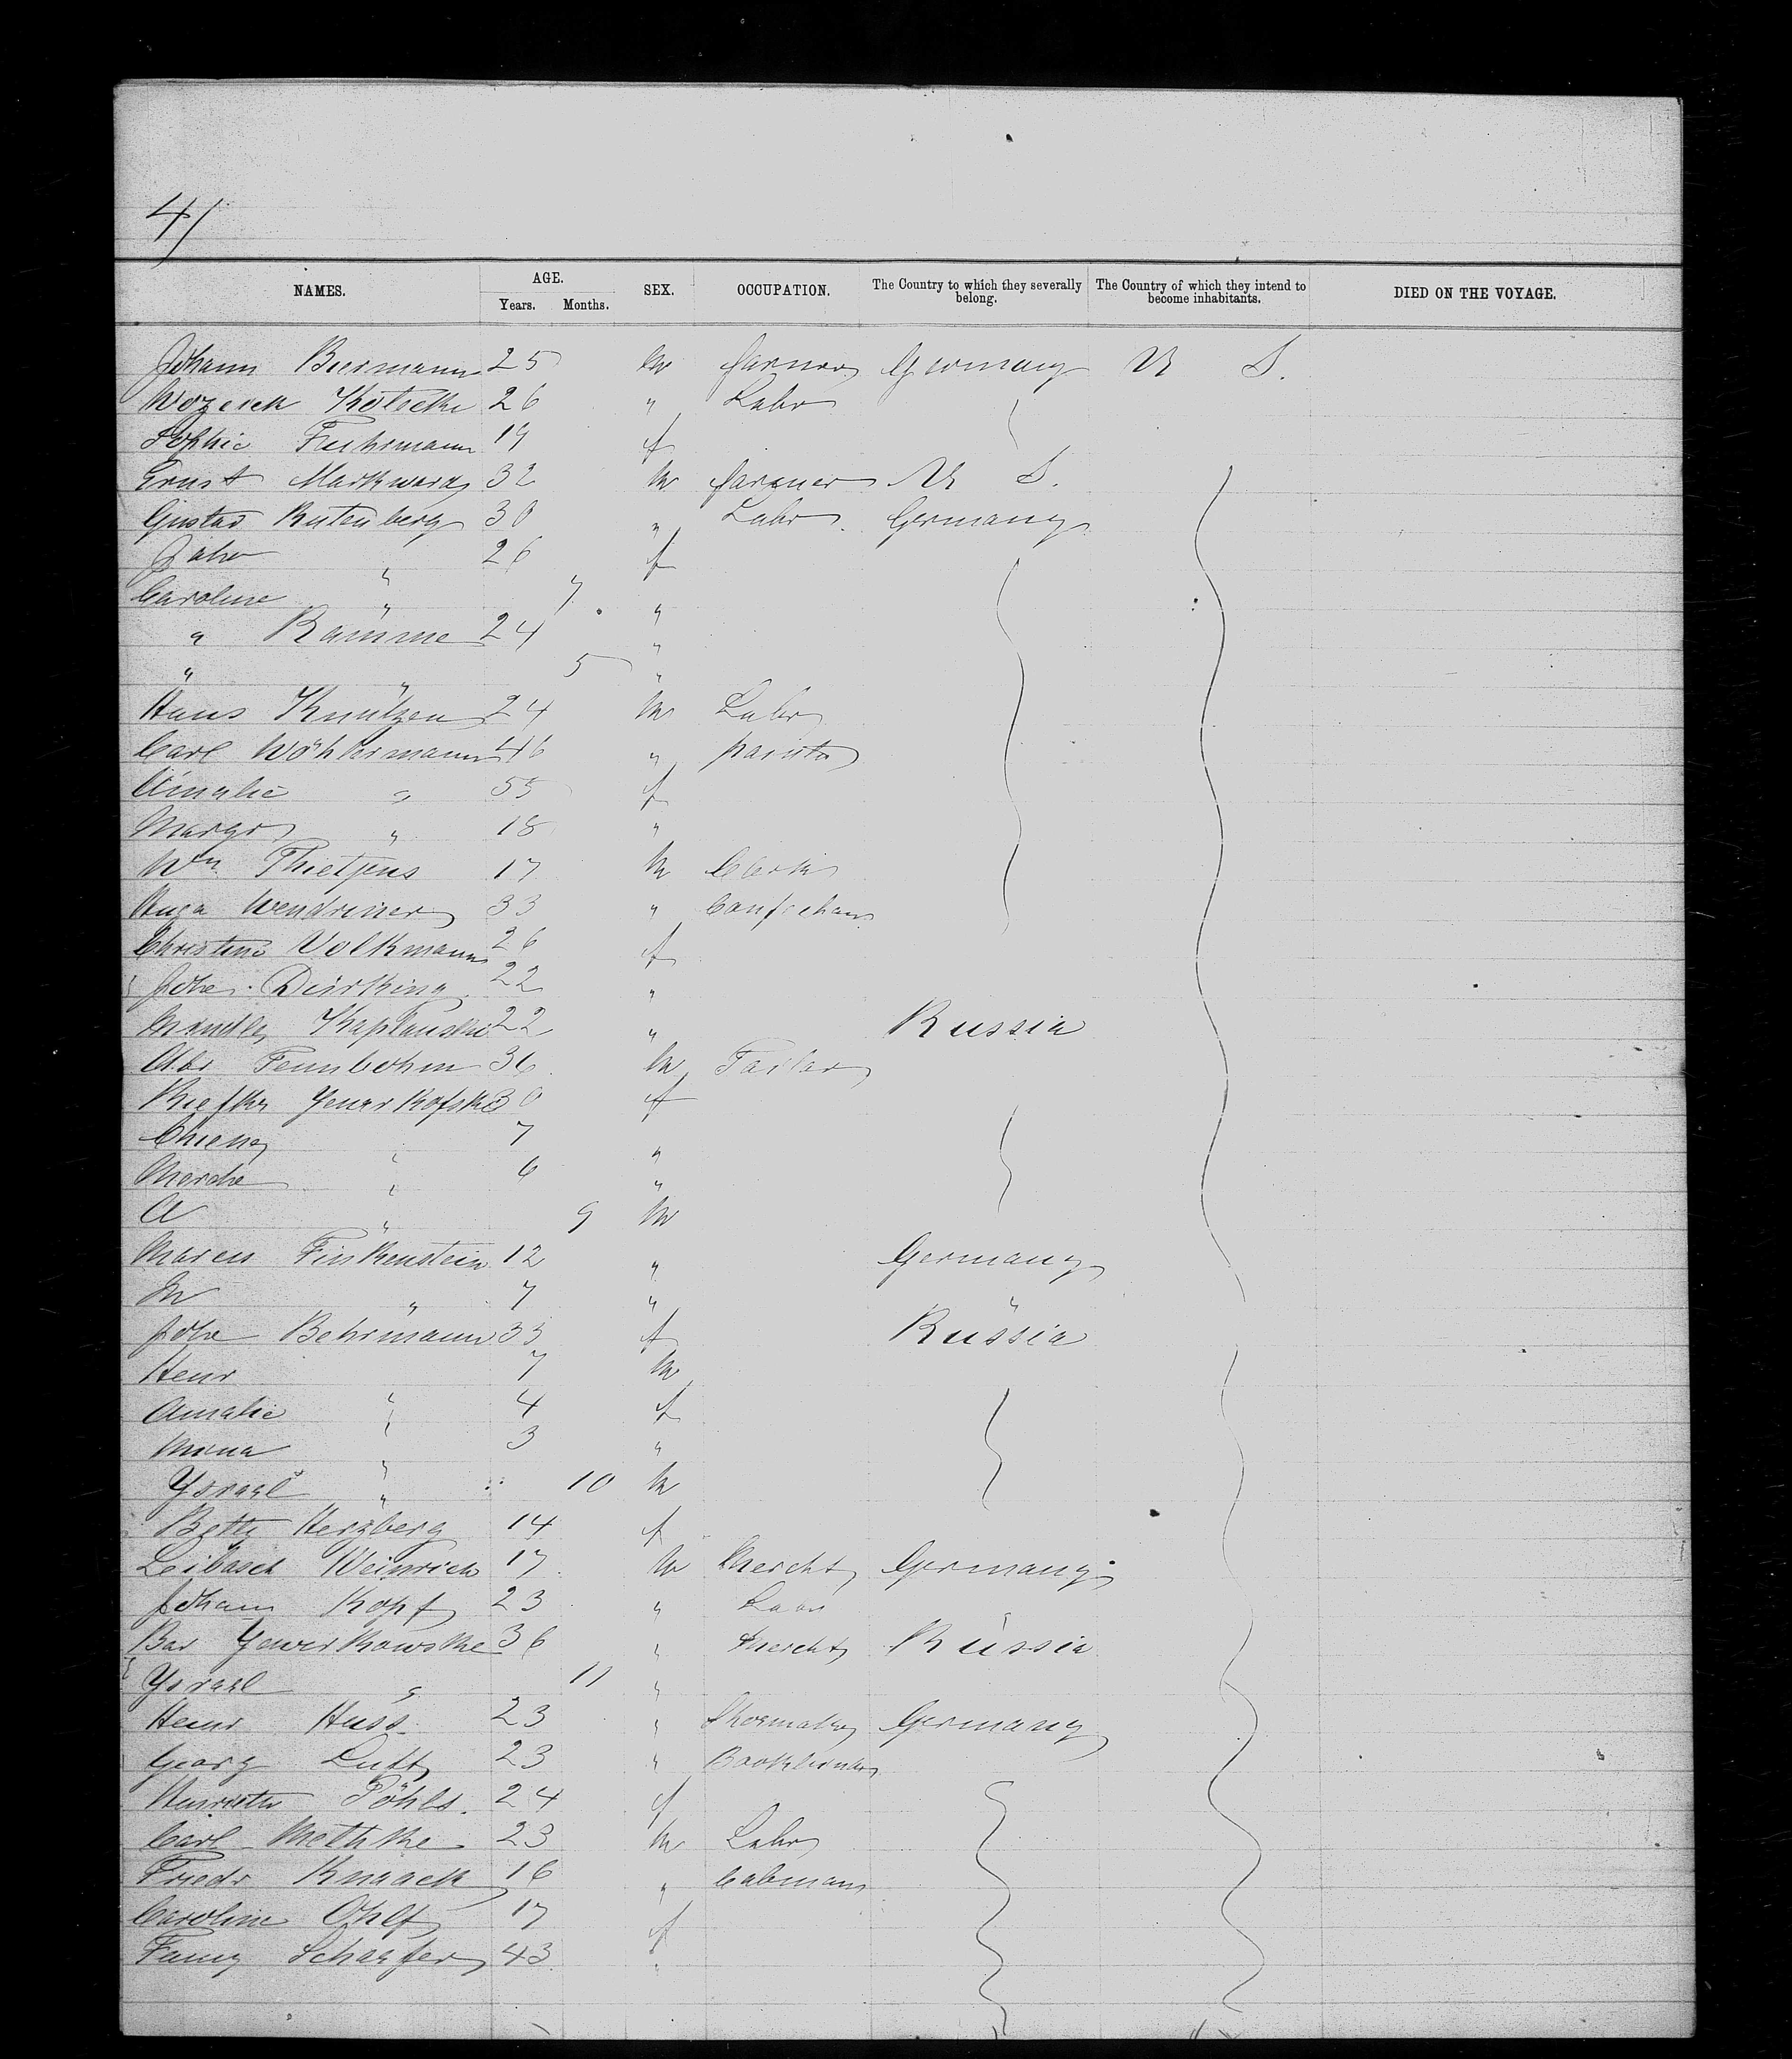 41
NAMES. AGE. Years. Months. SEX. OCCUPATION. The Country to which they severally belong. The Country of which they intend to become inhabitants. DIED ON THE VOYAGE.
Johann Biermann 25 m farmer Germany U S.
26 " Labr
Sophie Fuhrmann 19 f
Ernst Markward 32 m farmer U S.
Gustav Rutenberg 30 " Labr. Germany
" 26 f
Caroline " 7 "
" Ramme 24 "
" " 5 "
Hans Knutzen 24 m Labr
Carl Wöhlermann 46 " painter
Amalie " 55 f
Margr " 18 "
Wm Thietjens 17 m Clerk
Hugo Wendriner 33 "
Christine Volkmann 26 f
Joha. Dierking 22 "
22 " Russia
Abr 36 m Tailor
30 f
7 "
" 6 "
A " 9 m
Marcus Finkenstein 12 " Germany
M " 7 " "
Joha Behrmann 35 f Russia
Henr 7 m
Amalie " 4 f
Mina " 3 "
Ysrael " 10 m
Betty Herzberg 14 f
Leibasch Weinrich 17 m Mercht Germany
Johann Kopf 23 "
Bar Yewerkowske 36 " Mercht Russia
Ysrael " 11 "
Heinr Huss 23 " Shoemaker Germany
Georg Luft 23 " Bookbinder
Henriette Pöhls. 24 f
Carl Methke 23 m Labr
Friedr Knaack 16 " Cabman
Caroline Ohlf 17 f
Fanny Schaefer 43 "